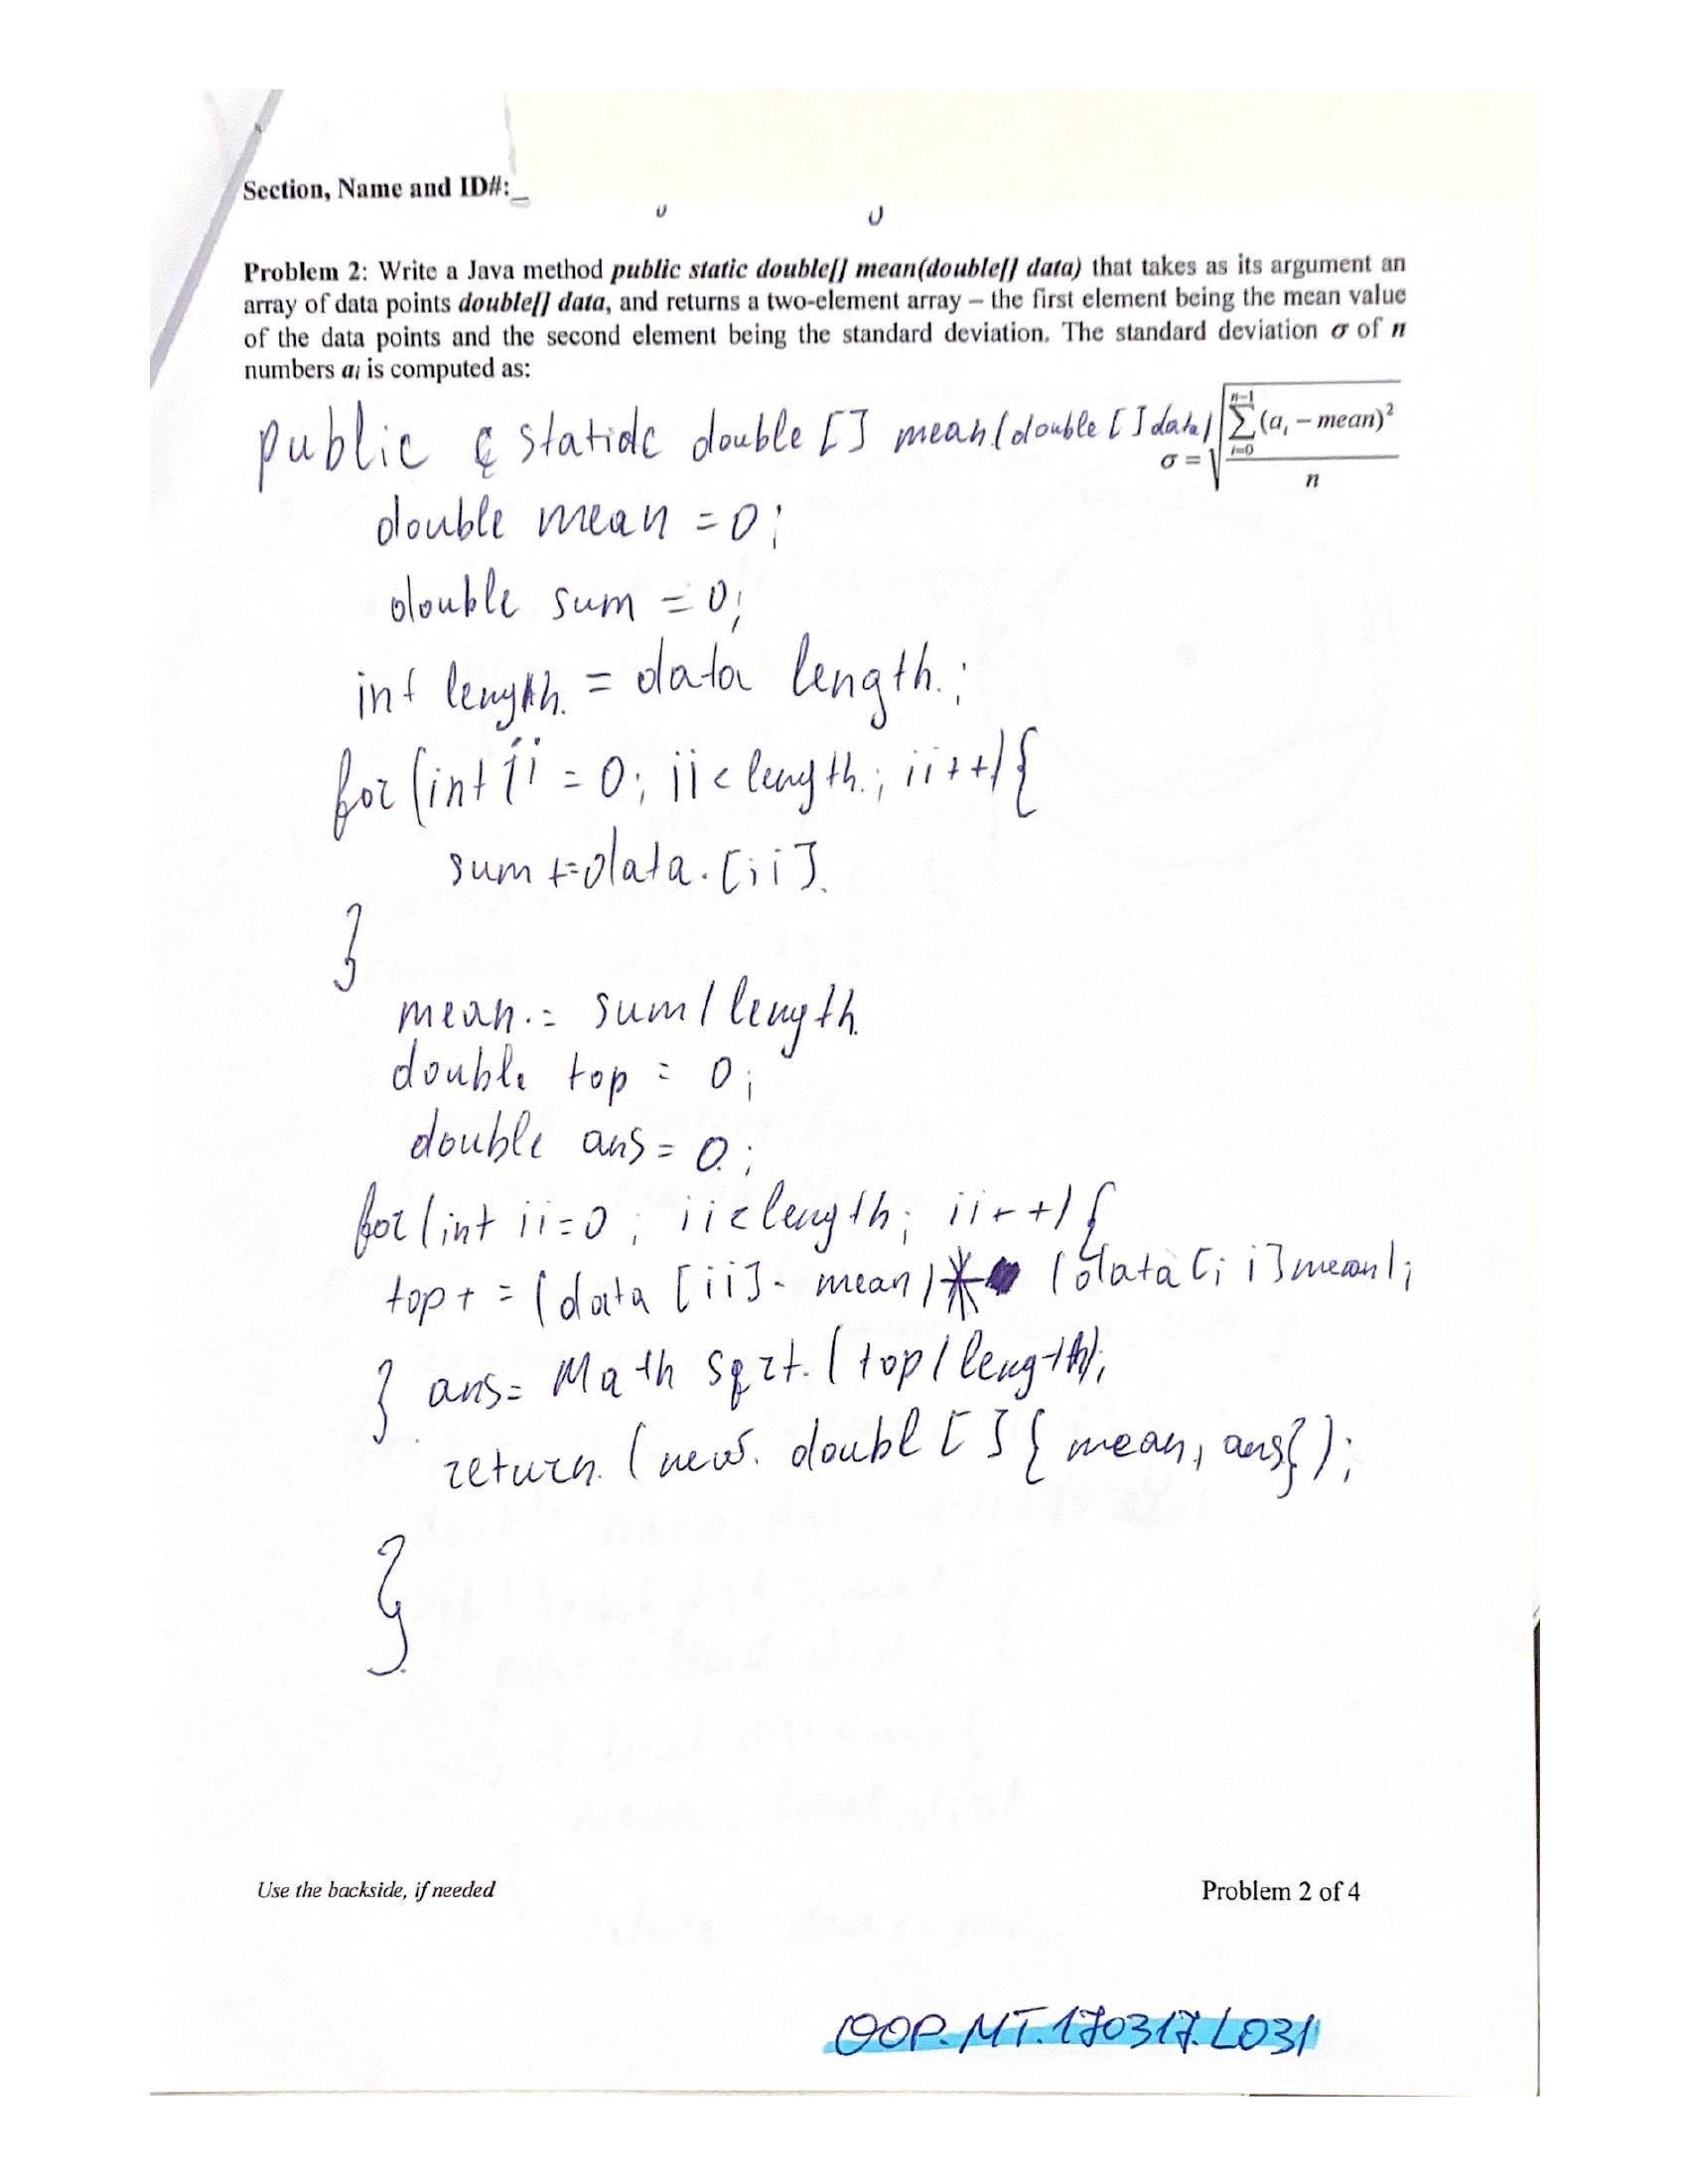 Section, Name and ID#:_
Problem 2: Write a Java method public static double[] mean(double[] data) that takes as its argument an
array of data points double[] data, and returns a two-element array – the first element being the mean value
of the data points and the second element being the standard deviation. The standard deviation σ of n
numbers aᵢ is computed as:
σ = √(∑_{i=0}^{n-1} (aᵢ – mean)² / n)
public static double [] mean(double [] data)
double mean = 0;
double sum = 0;
int length. = data length.;
for (int ii = 0; ii < length.; ii++) {
sum += data. [ii].
}
mean. = sum / length.
double top = 0;
double ans = 0.;
for (int ii = 0; ii < length; ii++) {
top + = (data [ii] - mean) * (data [ii] mean);
} ans = Math sqrt. (top / length);
return. (new. doubl [] { mean, ans});
}
Use the backside, if needed
Problem 2 of 4
OOP.MT.170317.L031